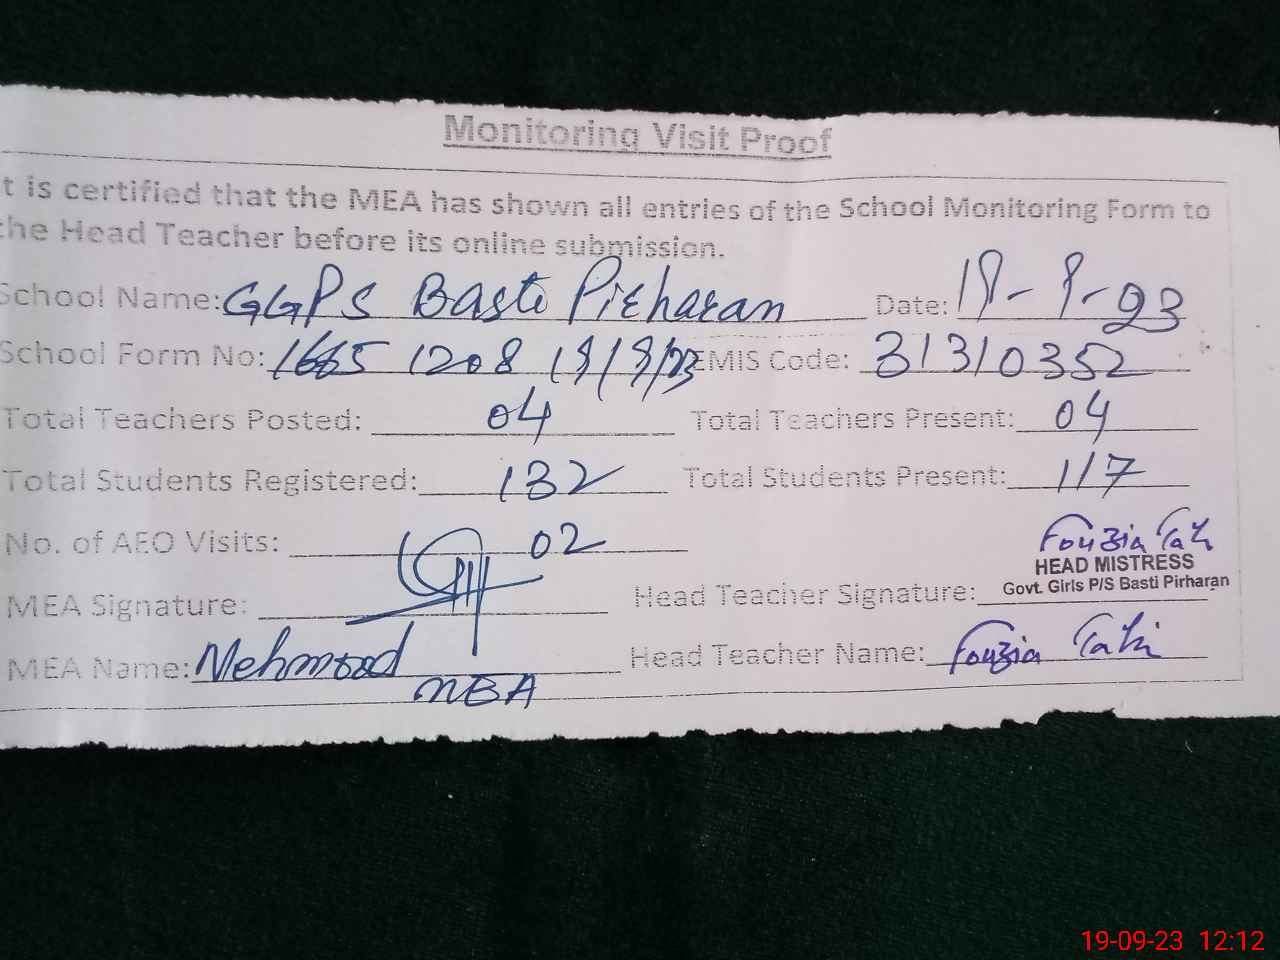 Monitoring Visit Proof
t is certified that the MEA has shown all entries of the School Monitoring Form to
the Head Teacher before its online submission.
School Name: GGPS Basti Pirharan Date: 19-9-23
School Form No: 1665 1208 19/9/23 EMIS Code: 31310352
Total Teachers Posted: 04 Total Teachers Present: 04
Total Students Registered: 132 Total Students Present: 117
No. of AEO Visits: 02 Fouzia
HEAD MISTRESS
Govt. Girls P/S Basti Pirharan
MEA Signature: Head Teacher Signature:
MEA Name: Mehmood Head Teacher Name: Fouzia
19-09-23 12:12